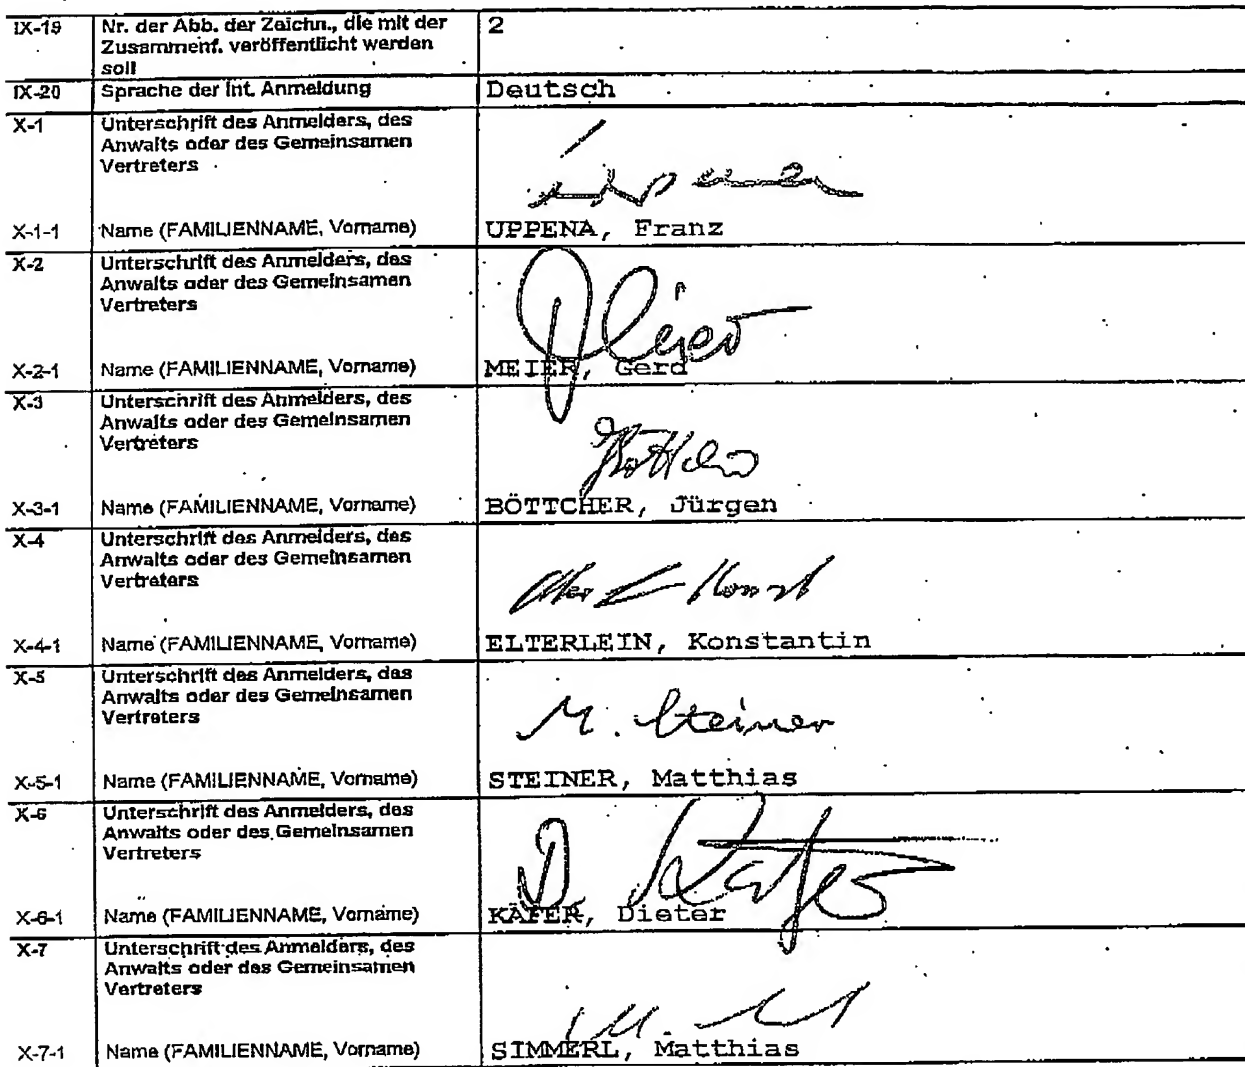 IX-19 Nr. der Abb. der Zeichn., die mit der 2
Zusammenf. veröffentlicht werden
soll
IX-20 Sprache der Int. Anmeldung Deutsch
X-1 Unterschrift des Anmelders, des
Anwalts oder des Gemeinsamen
Vertreters
X-1-1 Name (FAMILIENNAME, Vorname) UPPENA, Franz
X-2 Unterschrift des Anmelders, des
Anwalts oder des Gemeinsamen
Vertreters
X-2-1 Name (FAMILIENNAME, Vorname) MEIER, Gerd
X-3 Unterschrift des Anmelders, des
Anwalts oder des Gemeinsamen
Vertreters
X-3-1 Name (FAMILIENNAME, Vorname) BÖTTCHER, Jürgen
X-4 Unterschrift des Anmelders, des
Anwalts oder des Gemeinsamen
Vertreters
X-4-1 Name (FAMILIENNAME, Vorname) ELTERLEIN, Konstantin
X-5 Unterschrift des Anmelders, des
Anwalts oder des Gemeinsamen
Vertreters
M. Steiner
X-5-1 Name (FAMILIENNAME, Vorname) STEINER, Matthias
X-6 Unterschrift des Anmelders, des
Anwalts oder des Gemeinsamen
Vertreters
D. Käfer
X-6-1 Name (FAMILIENNAME, Vorname) KÄFER, Dieter
X-7 Unterschrift des Anmelders, des
Anwalts oder des Gemeinsamen
Vertreters
X-7-1 Name (FAMILIENNAME, Vorname) SIMMERL, Matthias